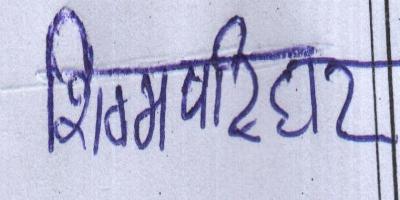 शिवम परिहार